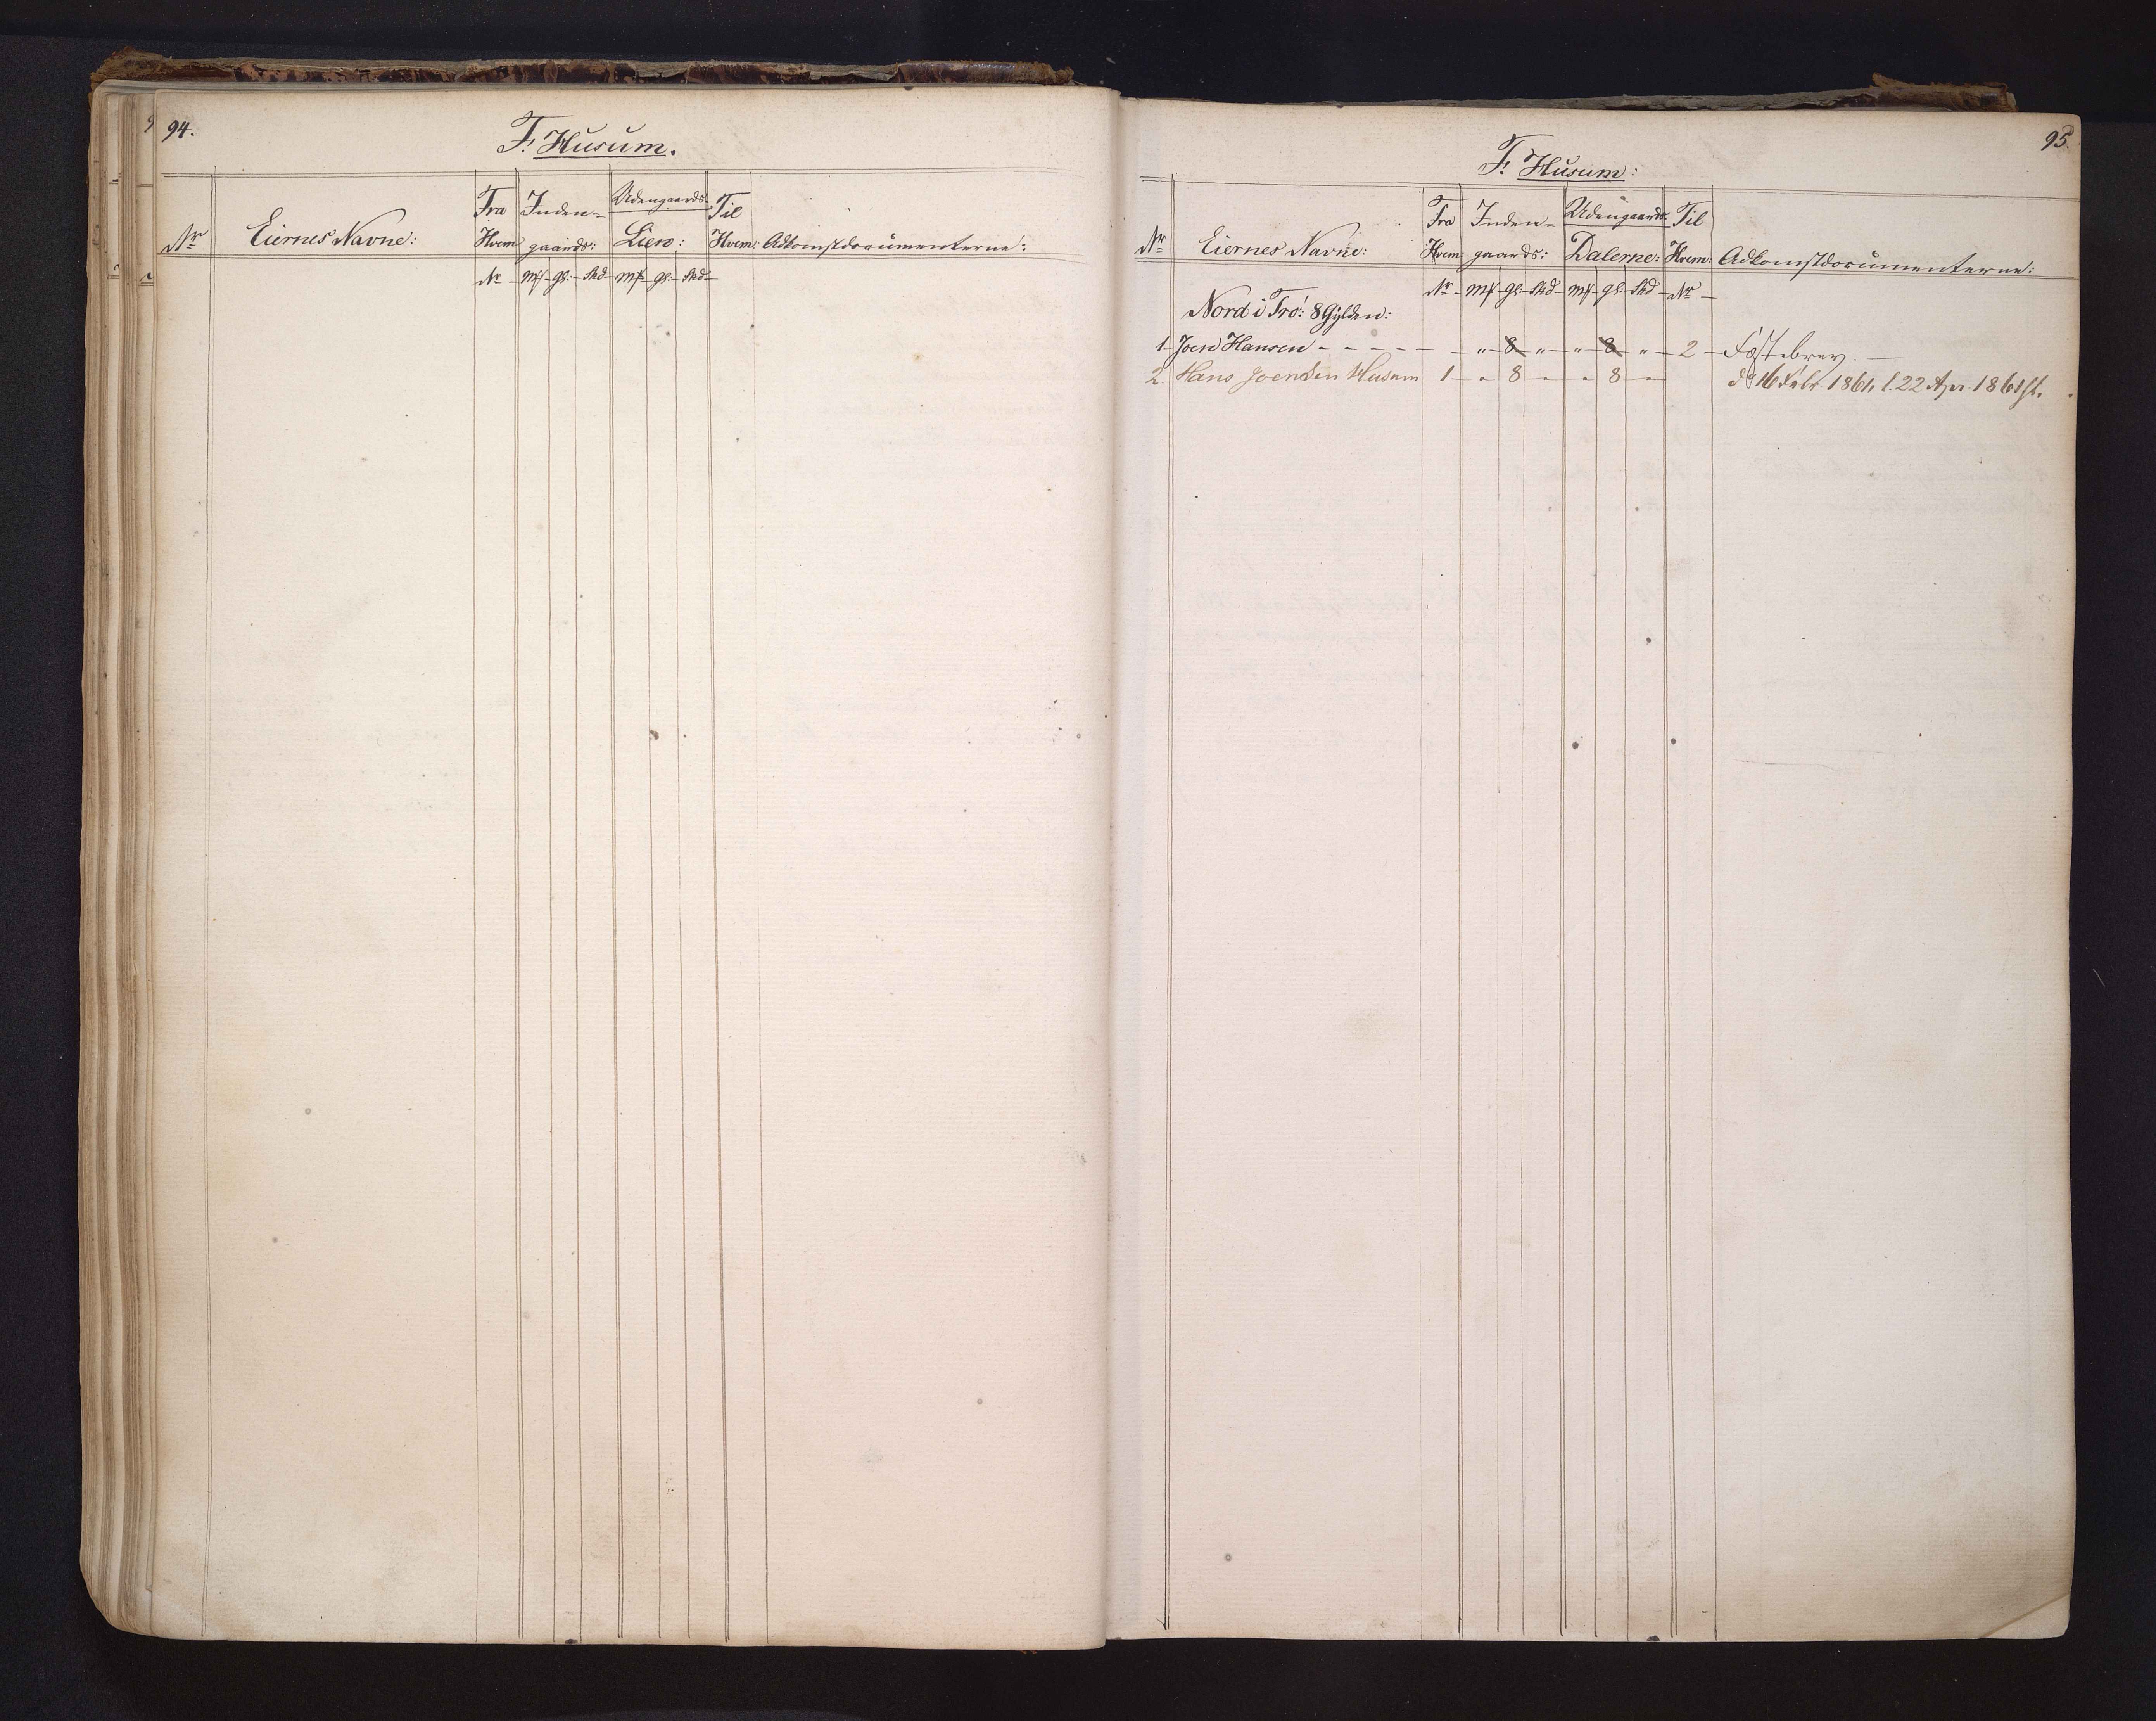 94.
F. Husum.
Nr Eiernes Navne: Fra Hvem Inden-gaards: Udengaards Lien: Til Hvem: Adkomstdocumenterne:
Nr – Mk – gl. – Skd – Mk – gl. – Skd –
95.
F. Husum:
Nr Eiernes Navne: Fra Hvem: Inden-gaards: Udengaards Dalerne: Til Hvem: Adkomstdocumenterne:
Nr – Mk – gl. – Skd – Mk – gl. – Skd – Nr –
Nord i Trö: 8 Gylden:
1 – Joen Hansen – – – – – – „ – 8 „ – „ – 8 „ – 2 – Fæstebrev. –
2. Hans Joensen Husum 1 – „ 8 „ „ 8 „ d 16 Febr. 1861, l. 22 Apr. 1861